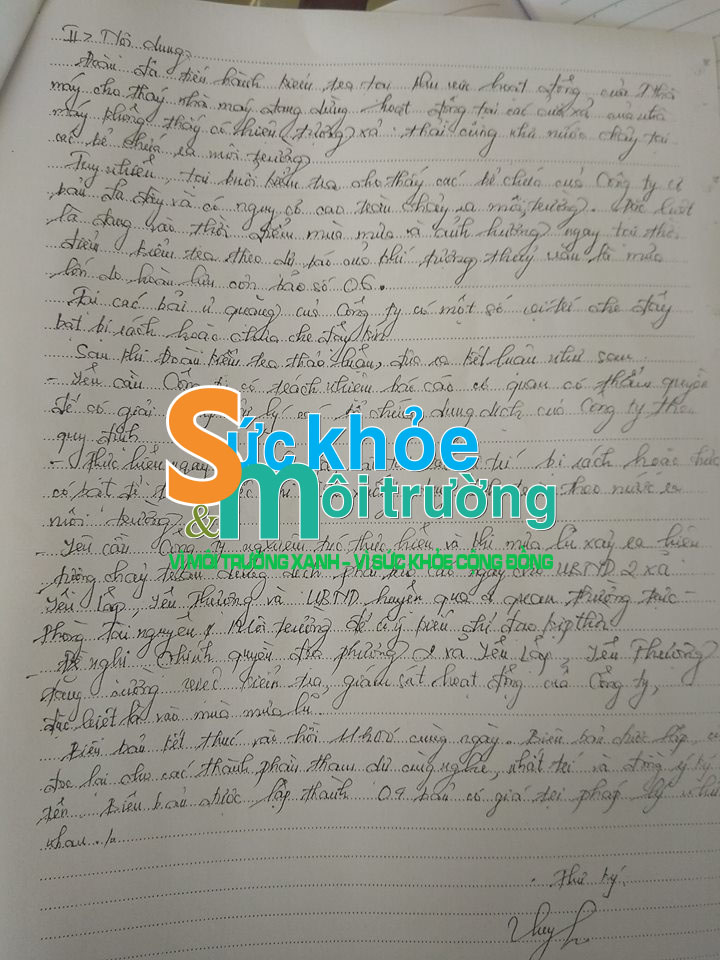 II> Nội dung:
Đoàn đã tiến hành kiểm tra tại khu vực hoạt động của nhà
máy cho thấy nhà máy đang dừng hoạt động tại các cửa xả của nhà
máy không thấy có hiện tượng xả thải cũng như nước chảy tại
các bể chứa ra môi trường
Tuy nhiên, tại buổi kiểm tra cho thấy các bể chứa của Công ty cơ
bản đã đầy và có nguy cơ cao tràn chảy ra môi trường. Đặc biệt
là đang vào thời điểm mùa mưa và ảnh hưởng ngay tại thời
điểm kiểm tra theo dự báo của khí tượng thủy văn là mưa
lớn do hoàn lưu cơn bão số 06.
Tại các bãi ủ quặng của Công ty có một số vị trí che đậy
bạt bị rách hoặc chưa che đậy kín
Sau khi Đoàn kiểm tra thảo luận, đưa ra kết luận như sau:
- Yêu cầu Công ty có trách nhiệm báo cáo cơ quan có thẩm quyền
để có giải lý dung dịch của Công ty theo
quy định
- Thực hiện ngay trí bị rách hoặc
có bạt để theo nước ra
môi trường
- Yêu cầu Công ty nghiêm túc thực hiện và khi mưa lũ xảy ra hiện
tượng chảy tràn dung dịch phải báo cáo ngay cho UBND 2 xã
Yên Lập, Yên Thượng và UBND huyện qua cơ quan thường trực -
Phòng Tài nguyên & Môi trường để có ý kiến chỉ đạo kịp thời
- Đề nghị Chính quyền địa phương 2 xã Yên Lập, Yên Thượng
tăng cường việc kiểm tra, giám sát hoạt động của Công ty,
đặc biệt là vào mùa mưa lũ.
Biên bản kết thúc vào hồi 11h00 cùng ngày. Biên bản được lập,
đọc lại cho các thành phần tham dự cùng nghe, nhất trí và đồng ý ký
tên. Biên bản được lập thành bản có giá trị pháp lý như
nhau./.
Thư ký
Sức khỏe
& môi trường
VÌ MÔI TRƯỜNG XANH - VÌ SỨC KHỎE CỘNG ĐỒNG